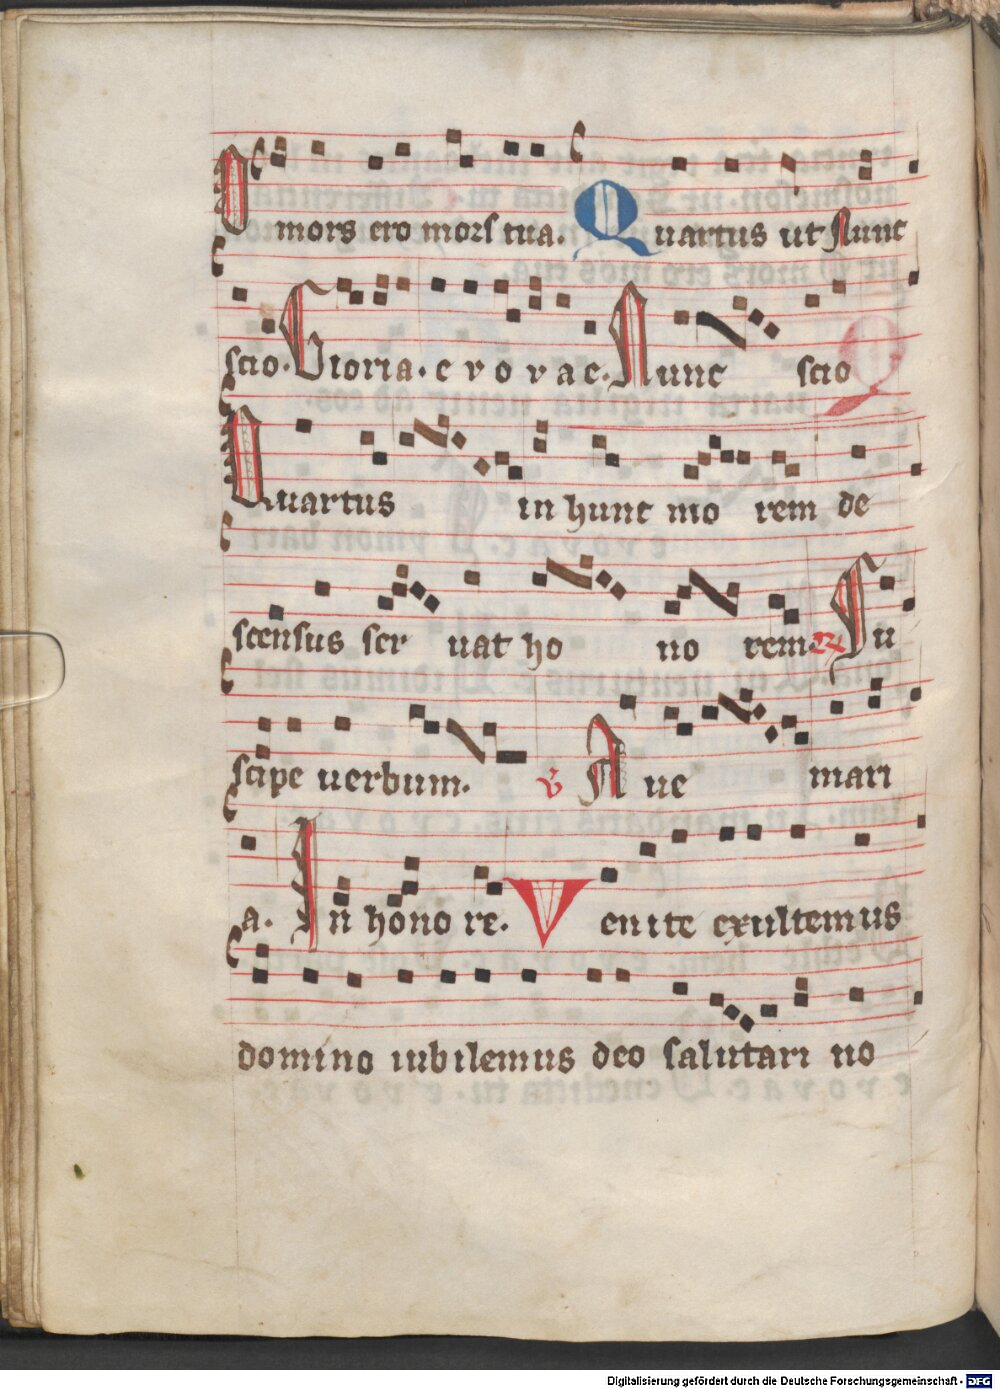 O mors ero mors tua. Quartus ut Nunc
scio. Gloria. e v o v a e. Nunc scio
Quartus in hunc mo rem de
scensus ser uat ho no rem. Su
scipe uerbum. Aue mari
a. In hono re. Venite exultemus
domino iubilemus deo salutari no
Digitalisierung gefördert durch die Deutsche Forschungsgemeinschaft - DFG